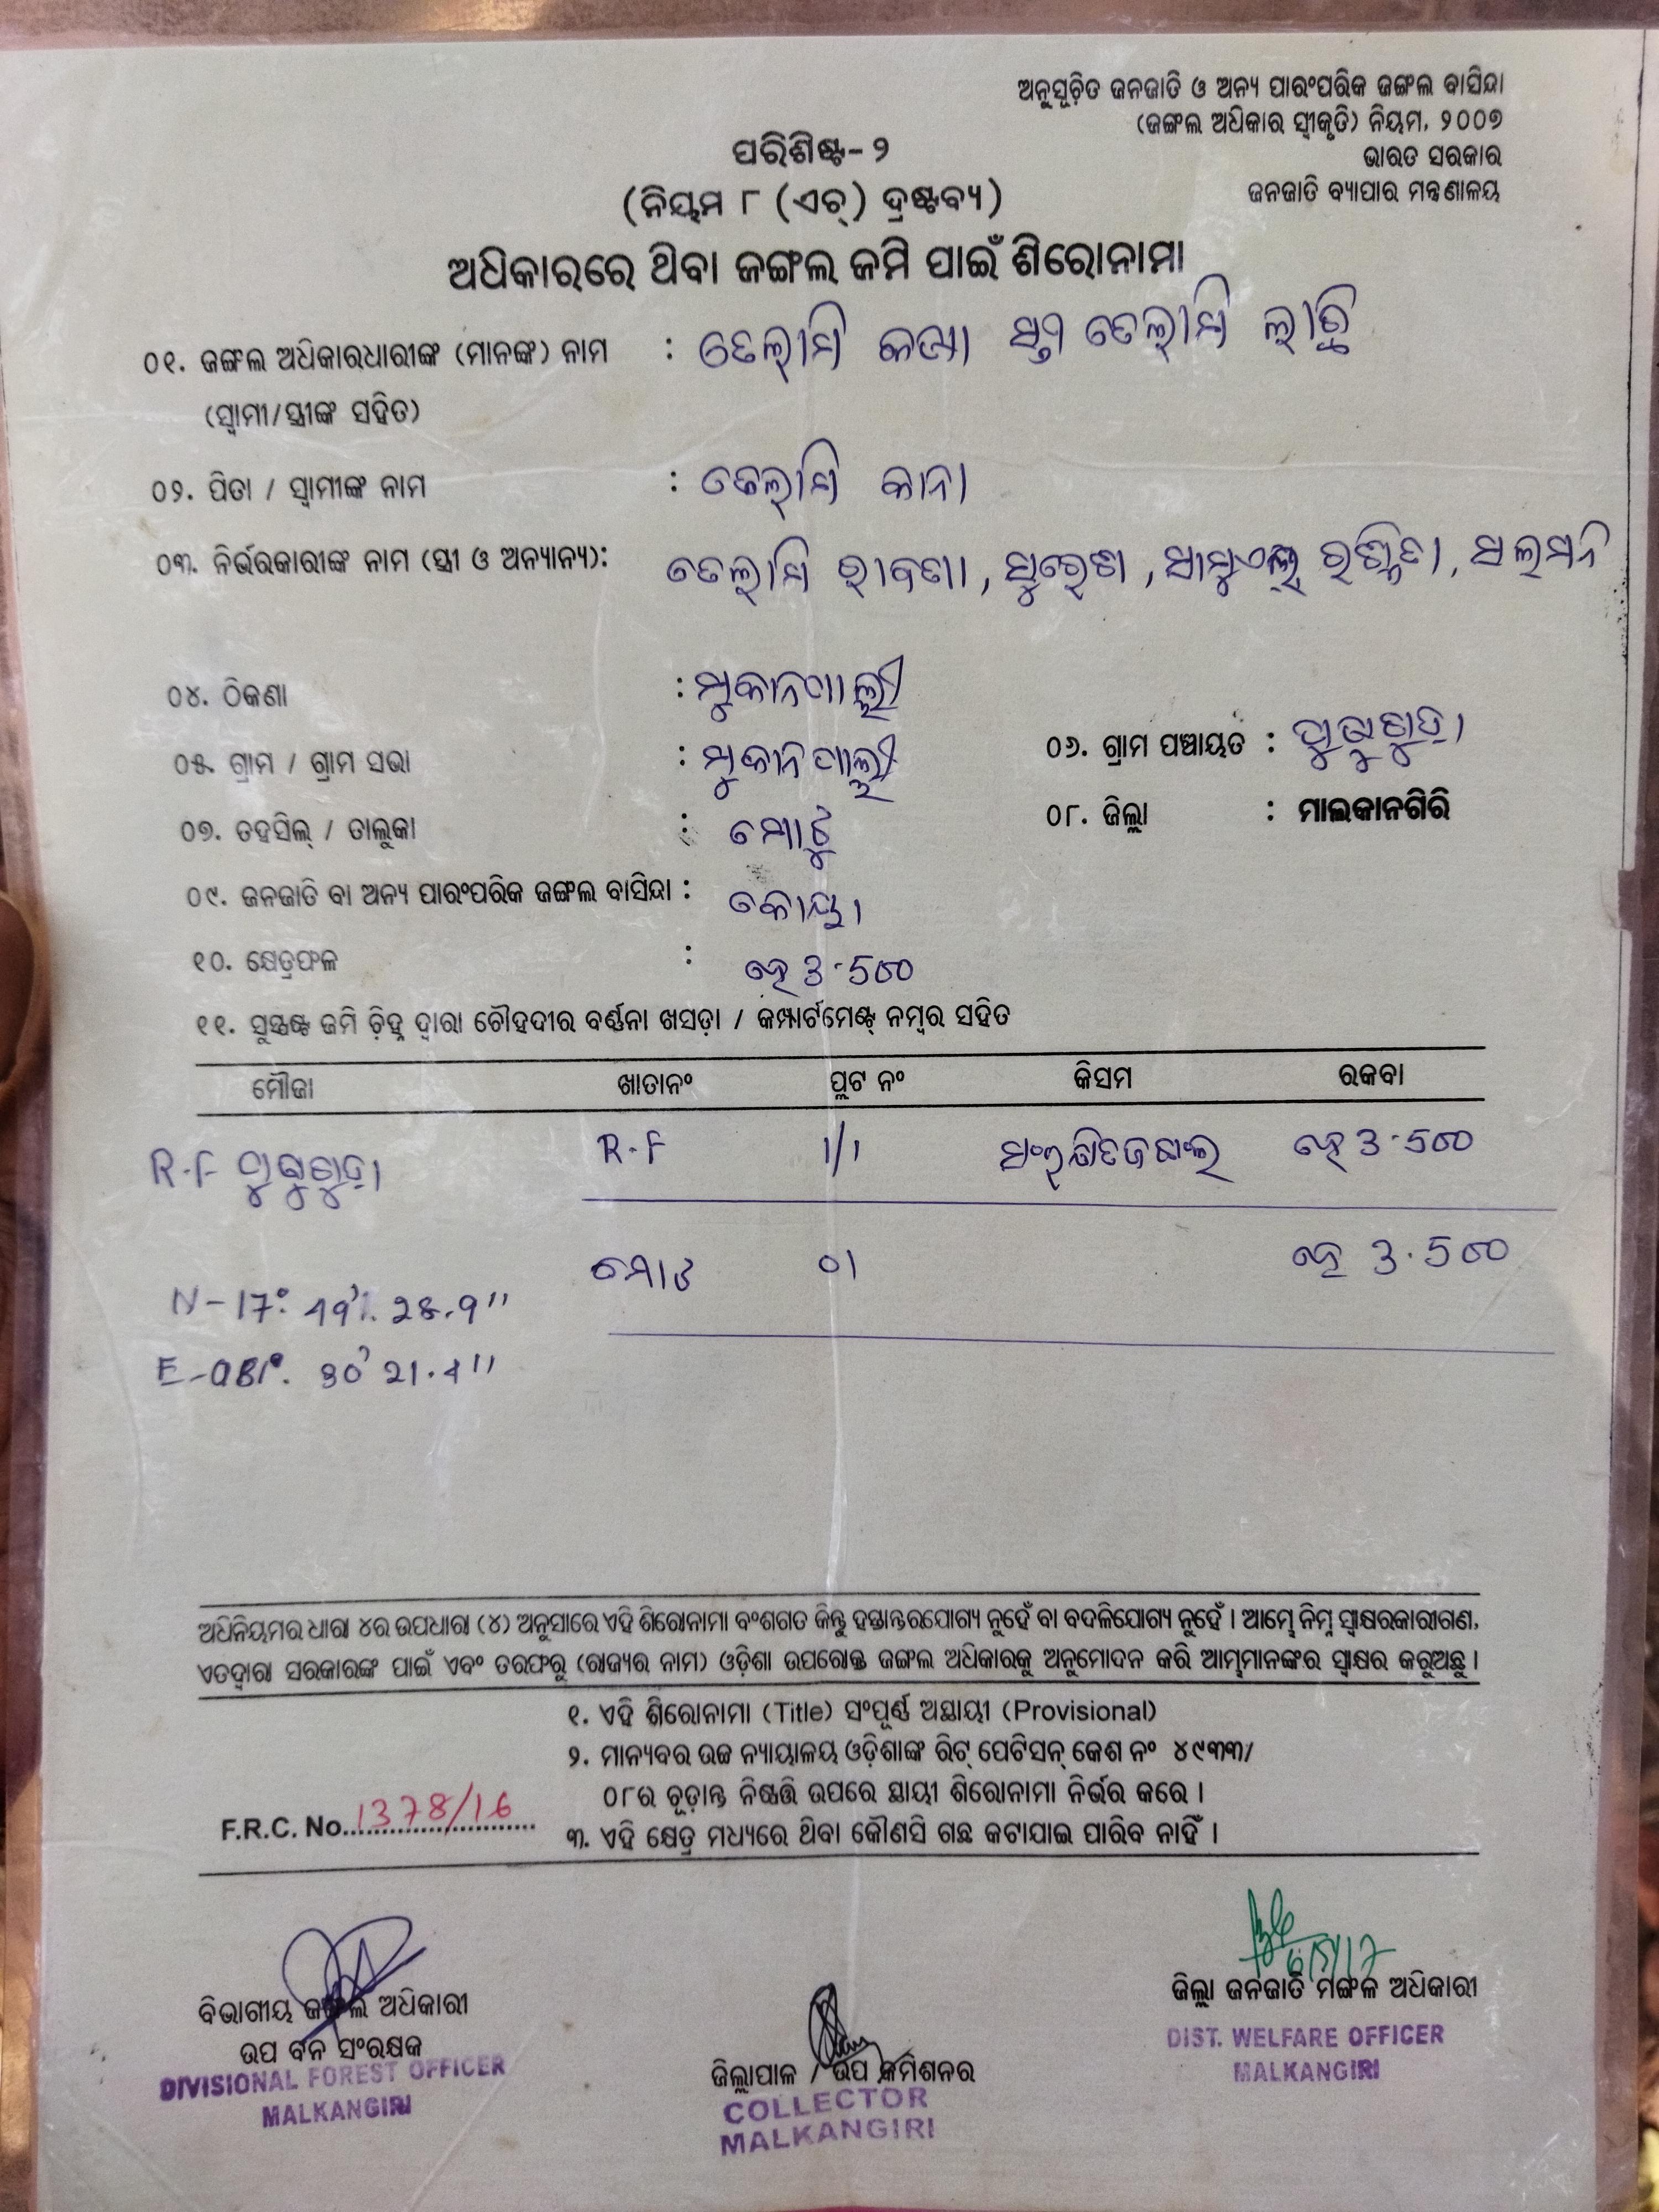 ଅନୁସୂଚିତ ଜନଜାତି ଓ ଅନ୍ୟ ପାରଂପରିକ ଜଙ୍ଗଲ ବାସିନ୍ଦା
(ଜଙ୍ଗଲ ଅଧିକାର ସ୍ୱୀକୃତି) ନିୟମ, ୨୦୦୭
ଭାରତ ସରକାର
ଜନଜାତି ବ୍ୟାପାର ମନ୍ତ୍ରଣାଳୟ
ପରିଶିଷ୍ଟ-୨
(ନିୟମ ୮ (ଏଚ୍) ଦ୍ରଷ୍ଟବ୍ୟ)
ଅଧିକାରରେ ଥିବା ଜଙ୍ଗଲ ଜମି ପାଇଁ ଶିରୋନାମା
୦୧. ଜଙ୍ଗଲ ଅଧିକାରଧାରୀଙ୍କ (ମାନଙ୍କ) ନାମ :
(ସ୍ୱାମୀ/ସ୍ତ୍ରୀଙ୍କ ସହିତ)
୦୨. ପିତା / ସ୍ୱାମୀଙ୍କ ନାମ : କାନା
୦୩. ନିର୍ଭରକାରୀଙ୍କ ନାମ (ସ୍ତ୍ରୀ ଓ ଅନ୍ୟାନ୍ୟ):
୦୪. ଠିକଣା :
୦୫. ଗ୍ରାମ / ଗ୍ରାମ ସଭା : ୦୬. ଗ୍ରାମ ପଞ୍ଚାୟତ :
୦୭. ତହସିଲ୍ / ତାଲୁକା : ମୋଟୁ ୦୮. ଜିଲ୍ଲା : ମାଲକାନଗିରି
୦୯. ଜନଜାତି ବା ଅନ୍ୟ ପାରଂପରିକ ଜଙ୍ଗଲ ବାସିନ୍ଦା : କୋୟା
୧୦. କ୍ଷେତ୍ରଫଳ : ହେ 3.500
୧୧. ସୁସ୍ପଷ୍ଟ ଜମି ଚିହ୍ନ ଦ୍ୱାରା ଚୌହଦୀର ବର୍ଣ୍ଣନା ଖସଡ଼ା / କମ୍ପାର୍ଟମେଣ୍ଟ୍ ନମ୍ବର ସହିତ
ମୌଜା ଖାତାନଂ ପ୍ଲଟ ନଂ କିସମ ରକବା
R.F R.F 1/1 ସଂରକ୍ଷିତ ଜଙ୍ଗଲ ହେ 3.500
ମୋଟ 01 ହେ 3.500
N-17° 49' 28.9"
E-081° 30' 21.4"
ଅଧିନିୟମର ଧାରା ୪ର ଉପଧାରା (୪) ଅନୁସାରେ ଏହି ଶିରୋନାମା ବଂଶଗତ କିନ୍ତୁ ହସ୍ତାନ୍ତରଯୋଗ୍ୟ ନୁହେଁ ବା ବଦଳିଯୋଗ୍ୟ ନୁହେଁ । ଆମ୍ଭେ ନିମ୍ନ ସ୍ୱାକ୍ଷରକାରୀଗଣ,
ଏତଦ୍ୱାରା ସରକାରଙ୍କ ପାଇଁ ଏବଂ ତରଫରୁ (ରାଜ୍ୟର ନାମ) ଓଡ଼ିଶା ଉପରୋକ୍ତ ଜଙ୍ଗଲ ଅଧିକାରକୁ ଅନୁମୋଦନ କରି ଆମ୍ଭମାନଙ୍କର ସ୍ୱାକ୍ଷର କରୁଅଛୁ ।
୧. ଏହି ଶିରୋନାମା (Title) ସଂପୂର୍ଣ୍ଣ ଅସ୍ଥାୟୀ (Provisional)
୨. ମାନ୍ୟବର ଉଚ୍ଚ ନ୍ୟାୟାଳୟ ଓଡ଼ିଶାଙ୍କ ରିଟ୍ ପେଟିସନ୍ କେଶ ନଂ ୪୯୩୩/
୦୮ର ଚୂଡ଼ାନ୍ତ ନିଷ୍ପତ୍ତି ଉପରେ ସ୍ଥାୟୀ ଶିରୋନାମା ନିର୍ଭର କରେ ।
F.R.C. No. 1378/16
୩. ଏହି କ୍ଷେତ୍ର ମଧ୍ୟରେ ଥିବା କୌଣସି ଗଛ କଟାଯାଇ ପାରିବ ନାହିଁ ।
6/5/17
ବିଭାଗୀୟ ଜଙ୍ଗଲ ଅଧିକାରୀ
ଉପ ବନ ସଂରକ୍ଷକ
DIVISIONAL FOREST OFFICER
MALKANGIRI
ଜିଲ୍ଲାପାଳ / ଉପ କମିଶନର
COLLECTOR
MALKANGIRI
ଜିଲ୍ଲା ଜନଜାତି ମଙ୍ଗଳ ଅଧିକାରୀ
DIST. WELFARE OFFICER
MALKANGIRI